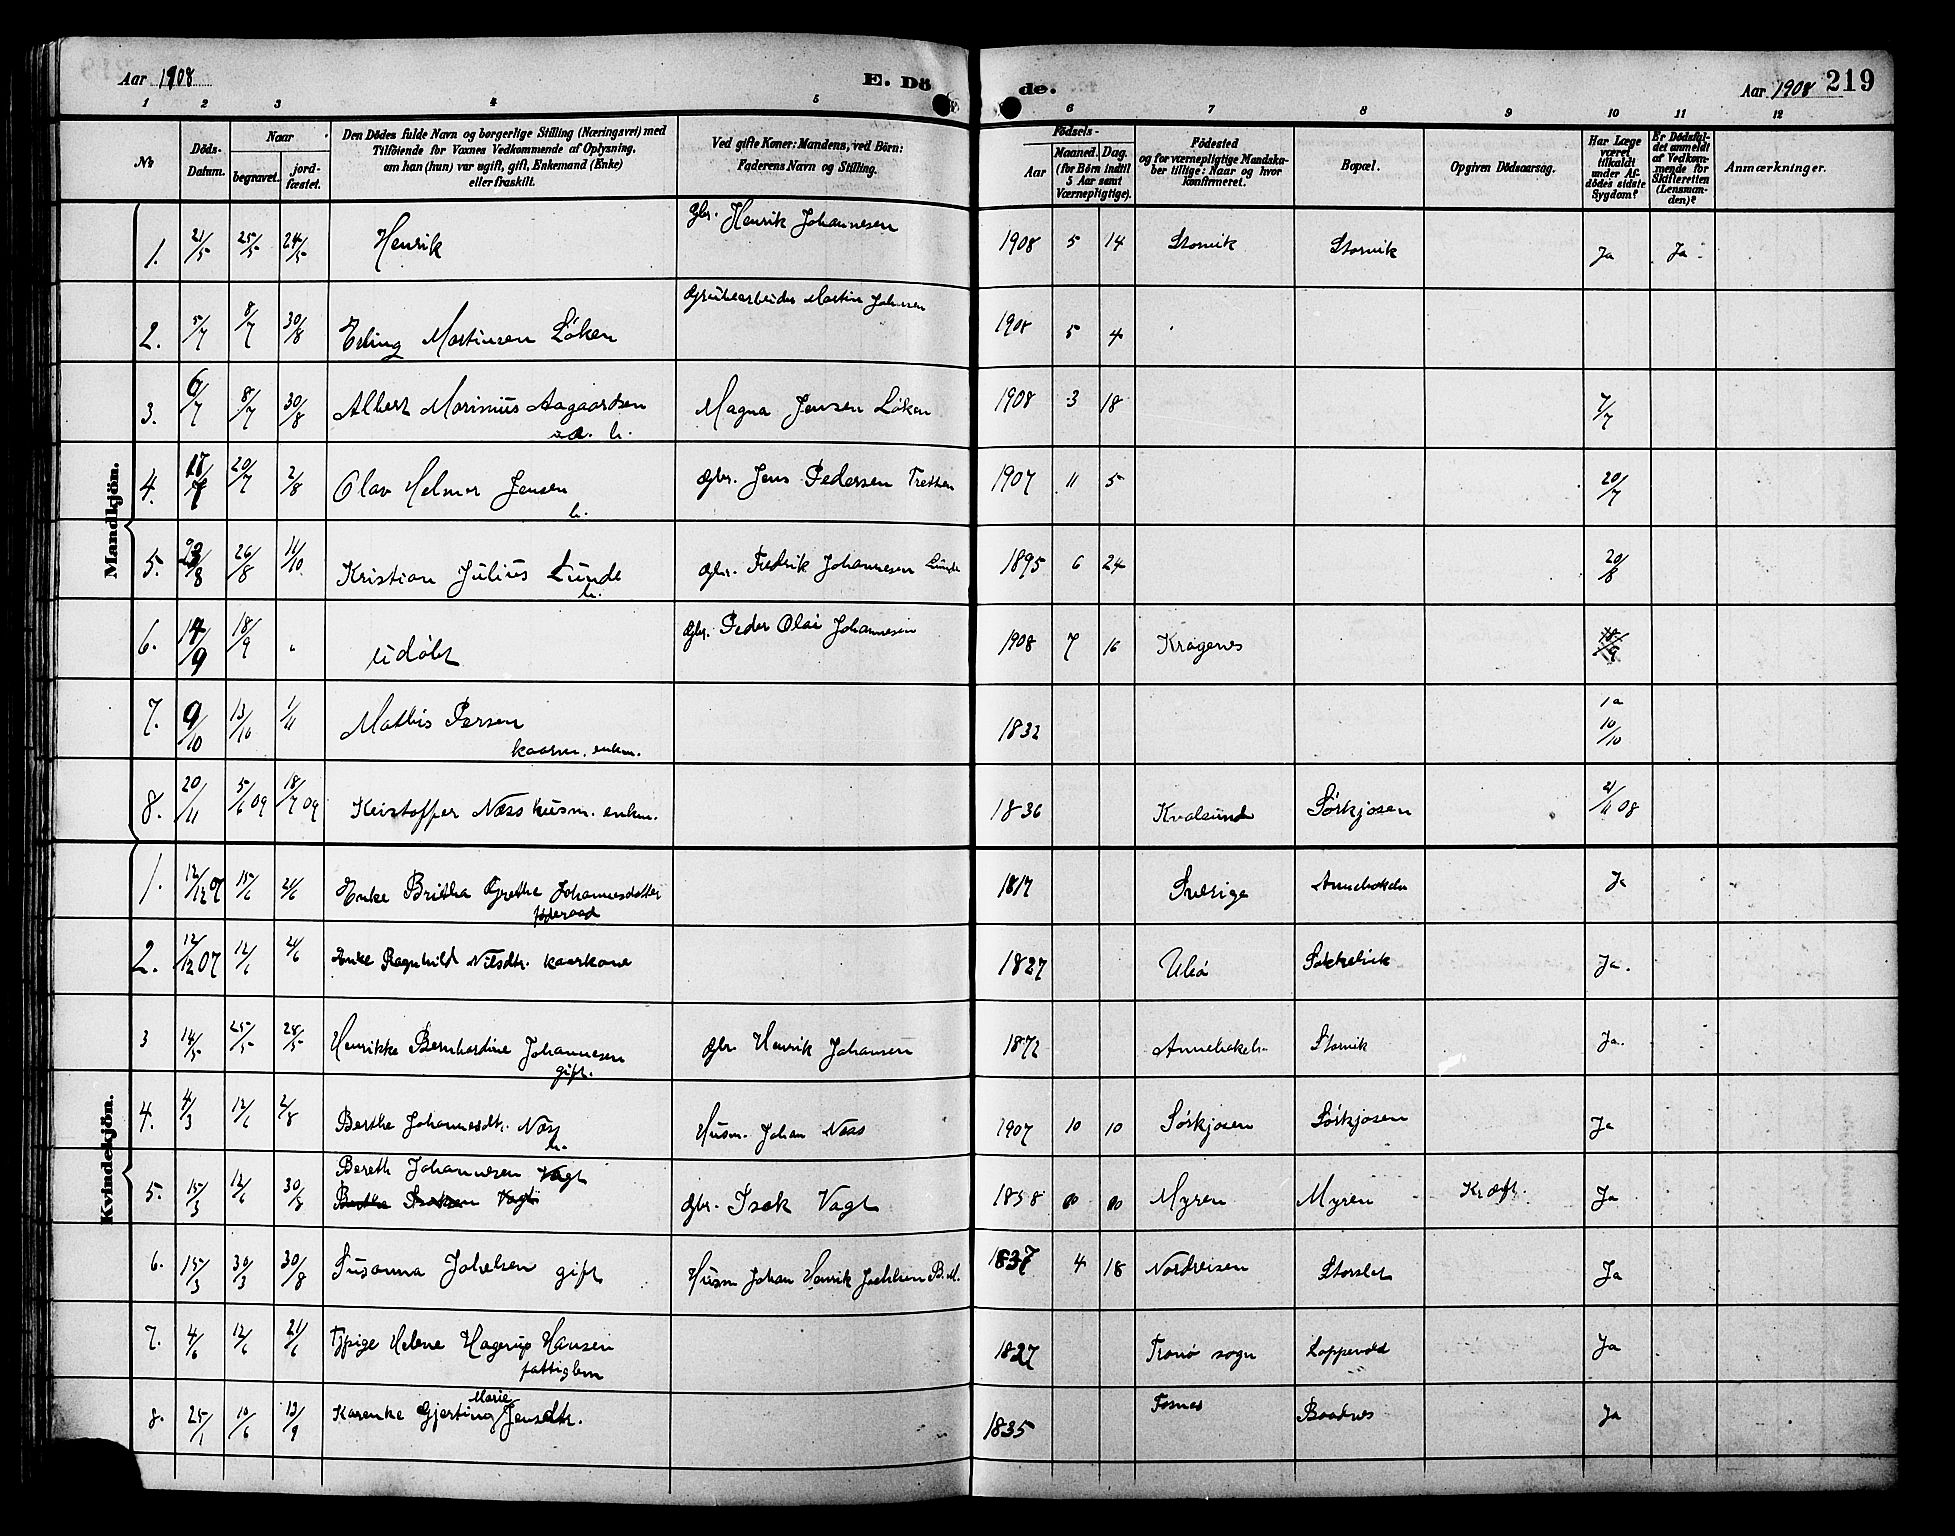 Aar 1908
E. Dö
de.
Aar 1908
219
1 2 3 4 5 6 7 8 9 10 11 12
No
Döds-Datum.
Naar
begravet.
jord-fæstet.
Den Dödes fulde Navn og borgerlige Stilling (Næringsvei) med
Tilföiende for Voxnes Vedkommende af Oplysning,
om han (hun) var ugift, gift, Enkemand (Enke)
eller fraskilt.
Ved gifte Koner: Mandens, ved Börn:
Faderens Navn og Stilling.
Födsels-
Aar
Maaned. Dag.
(for Börn indtil
5 Aar samt
Værnepligtige).
Födested
og for værnepligtige Mandska-
ber tillige: Naar og hvor
konfirmeret.
Bopæl.
Opgiven Dödsaarsag.
Har Læge
været
tilkaldt
under Af-
dödes sidste
Sygdom?
Er Dödsfal-
det anmeldt
af Vedkom-
mende for
Skifteretten
(Lensman-
den)?
Anmærkninger.
Mandkjön.
1. 21/5 25/5 24/5 Henrik Gbr. Henrik Johannesen 1908 5 14 Storvik Storvik Ja Ja
2. 5/7 8/7 30/8 Erling Martinsen Løken Grubearbeider Martin Johnsen 1908 5 4
3. 6/7 8/7 30/8 Albert Marinius Aagaardsen u.æ. b. Magna Jensen Løken 1908 3 18 7/7
4. 17/7 20/7 2/8 Olav Helmer Jensen b. Gbr. Jens Pedersen Tretten 1907 11 5 20/7
5. 20/8 26/8 11/10 Kristian Julius Lunde b. Gbr. Fredrik Johannesen Lunde 1895 6 24 20/8
6. 14/9 18/9 " udøbt Gbr. Peder Olai Johannesen 1908 7 16 Kragenes 18/9
7. 9/10 13/10 1/11 Mathis Persen kaarm. enkm. 1832 Ja 10/10
8. 20/11 5/6 09 18/7 09 Kristoffer Næss husm. enkm. 1836 Kvalsund Sørkjosen 21/11 08
Kvindekjön.
1. 12/12 07 15/6 21/6 Enke Britha Grethe Johannesdatter føderaad 1817 Sverige Ja
2. 12/12 07 12/6 21/6 Enke Ragnhild Nilsdtr. kaarkone 1827 Uløi Sokkelvik Ja.
3 14/5 25/5 28/5 Henrikke Bernhardine Johannesen gift. Gbr. Henrik Johansen 1872 Storvik Ja.
4. 4/3 12/6 2/8 Berthe Johannesdtr. Næss b. Husm. Johan Næss 1907 10 10 Sørkjosen Sørkjosen Ja
5. 15/3 12/6 30/8 Bereth Johannesen Vagt
Berthe Isaksen Vagt Gbr. Isak Vagt 1858 Myren Myren Kræft. Ja
6. 15/3 30/3 30/8 Susanna Johelsen gift Husm Johan Henrik Joehlsen B.M. 1837 4 18 Nordreisen Storslet Ja
7. 4/6 12/6 21/6 Tjpige Helene Hagerup Hansen fattiglem 1827 Tranø sogn Loppevold Ja
8. 25/1 10/6 13/9 Karenke Gjertine Marie Jensdtr. 1835 Fosnes Baadnes Ja